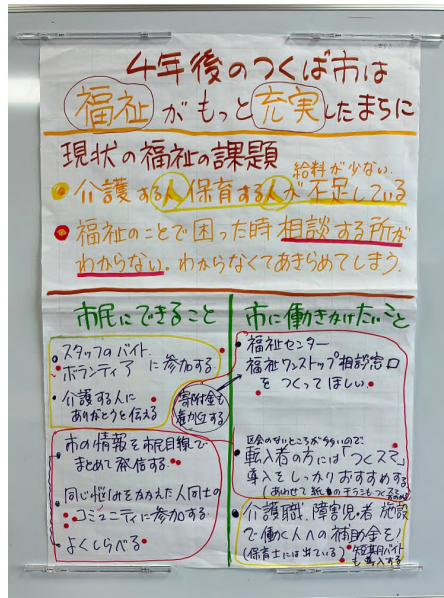 4年後のつくば市は
福祉がもっと充実したまちに
現状の福祉の課題
給料が少ない.
介護する人保育する人が不足している
福祉のことで困った時相談する所が
わからない。わからなくてあきらめてしまう.
市民にできること
スタッフのバイト
ボランティアに参加する
介護する人に
ありがとうを伝える
寄附金も
市の情報を市民目線で
まとめて発信する
同じ悩みをかかえた人同士の
コミュニティに参加する
よくしらべる
市に働きかけたいこと
福祉センター
福祉ワンストップ相談窓口
をつくってほしい
区会のないところが多いので、
転入者の方には「つくスマ」
導入をしっかりおすすめする
(あわせて紙のチラシも
介護職、障害児・者施設
で働く人への補助金を
(保育士には出ている)
短期バイト
も導入する